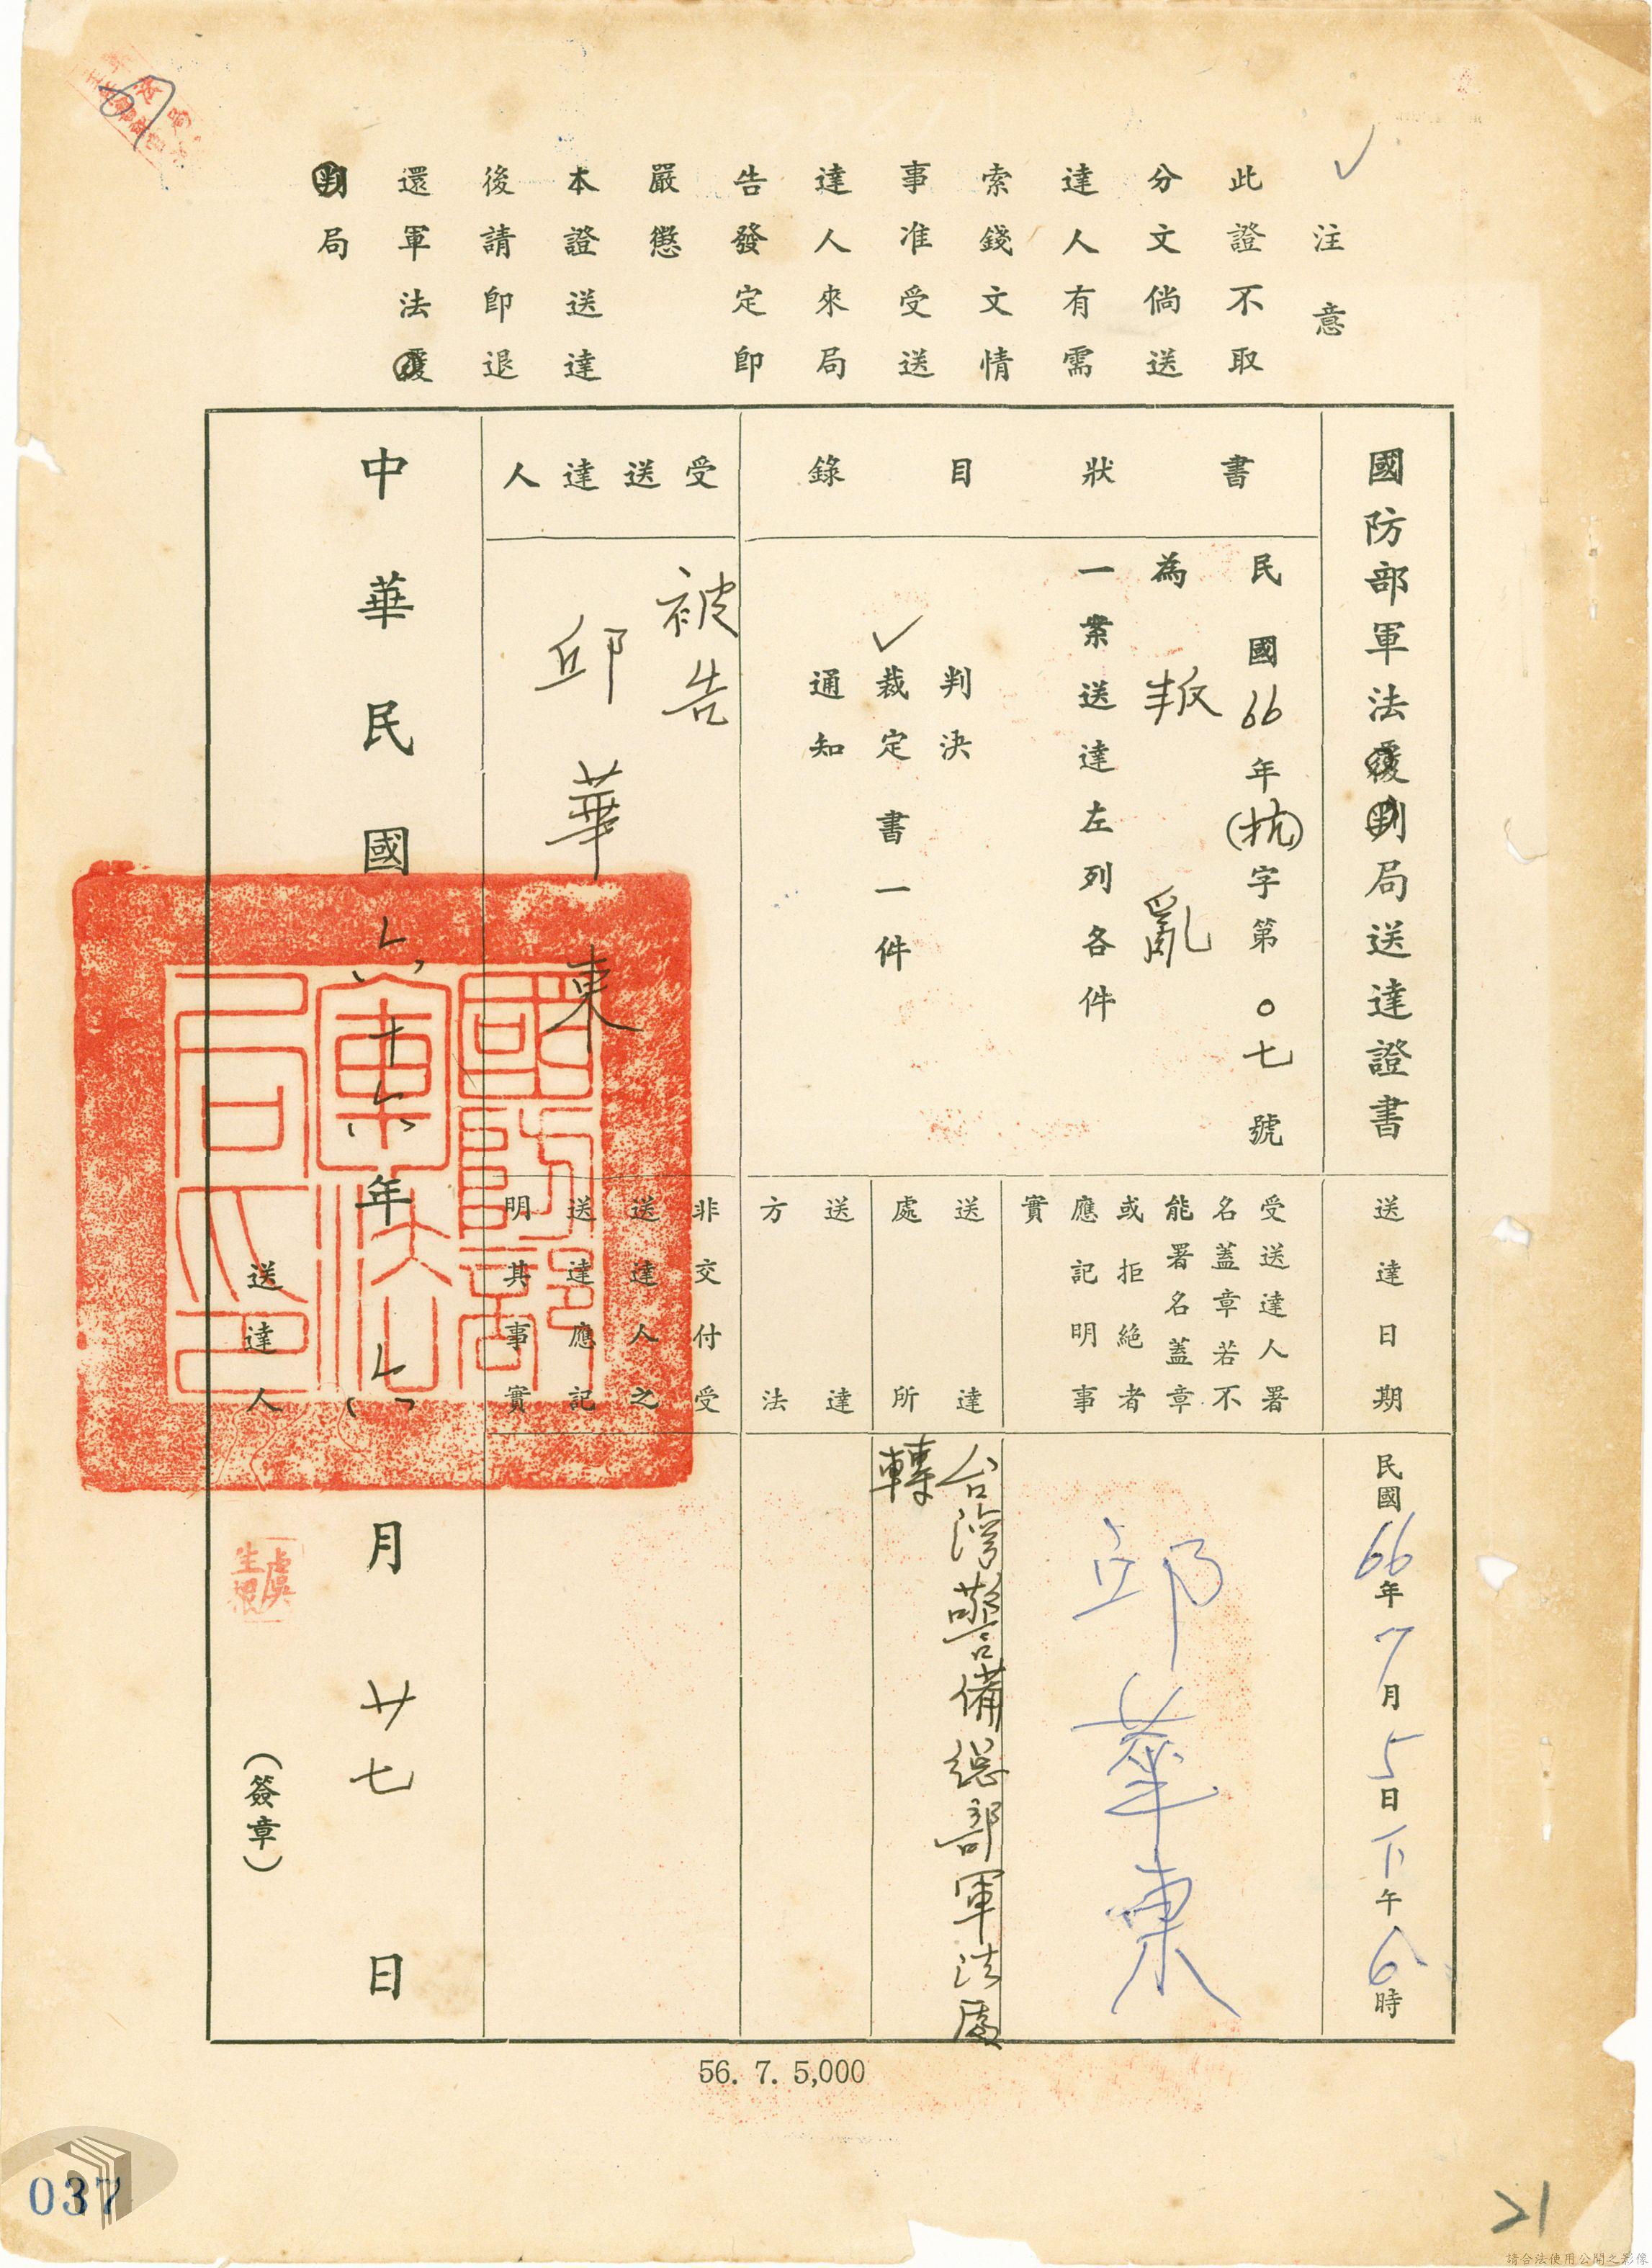 注意
此證不取
分文倘送
達人有需
索錢文情
事准受送
達人來局
告發定即
嚴懲
本證送達
後請即退
還軍法覆
判局
國防部軍法覆判局送達證書
書狀目錄
民國66年(抗)字第〇七號
為叛亂
一案送達左列各件
判決
裁定書一件
通知
受送達人
被告
邱華東
中華民國六十六年六月廿七日
送達人
虞生根
(簽章)
送達日期
民國66年7月5日下午6時
受送達人署
名蓋章若不
能署名蓋章
或拒絕者
應記明事
實
邱華東
送達
處所
台灣警備總部軍法處
轉
送達
方法
非交付受
送達人之
送達應記
明其事實
國防部軍法局之印
56. 7. 5,000
037
21
請合法使用公開之影像